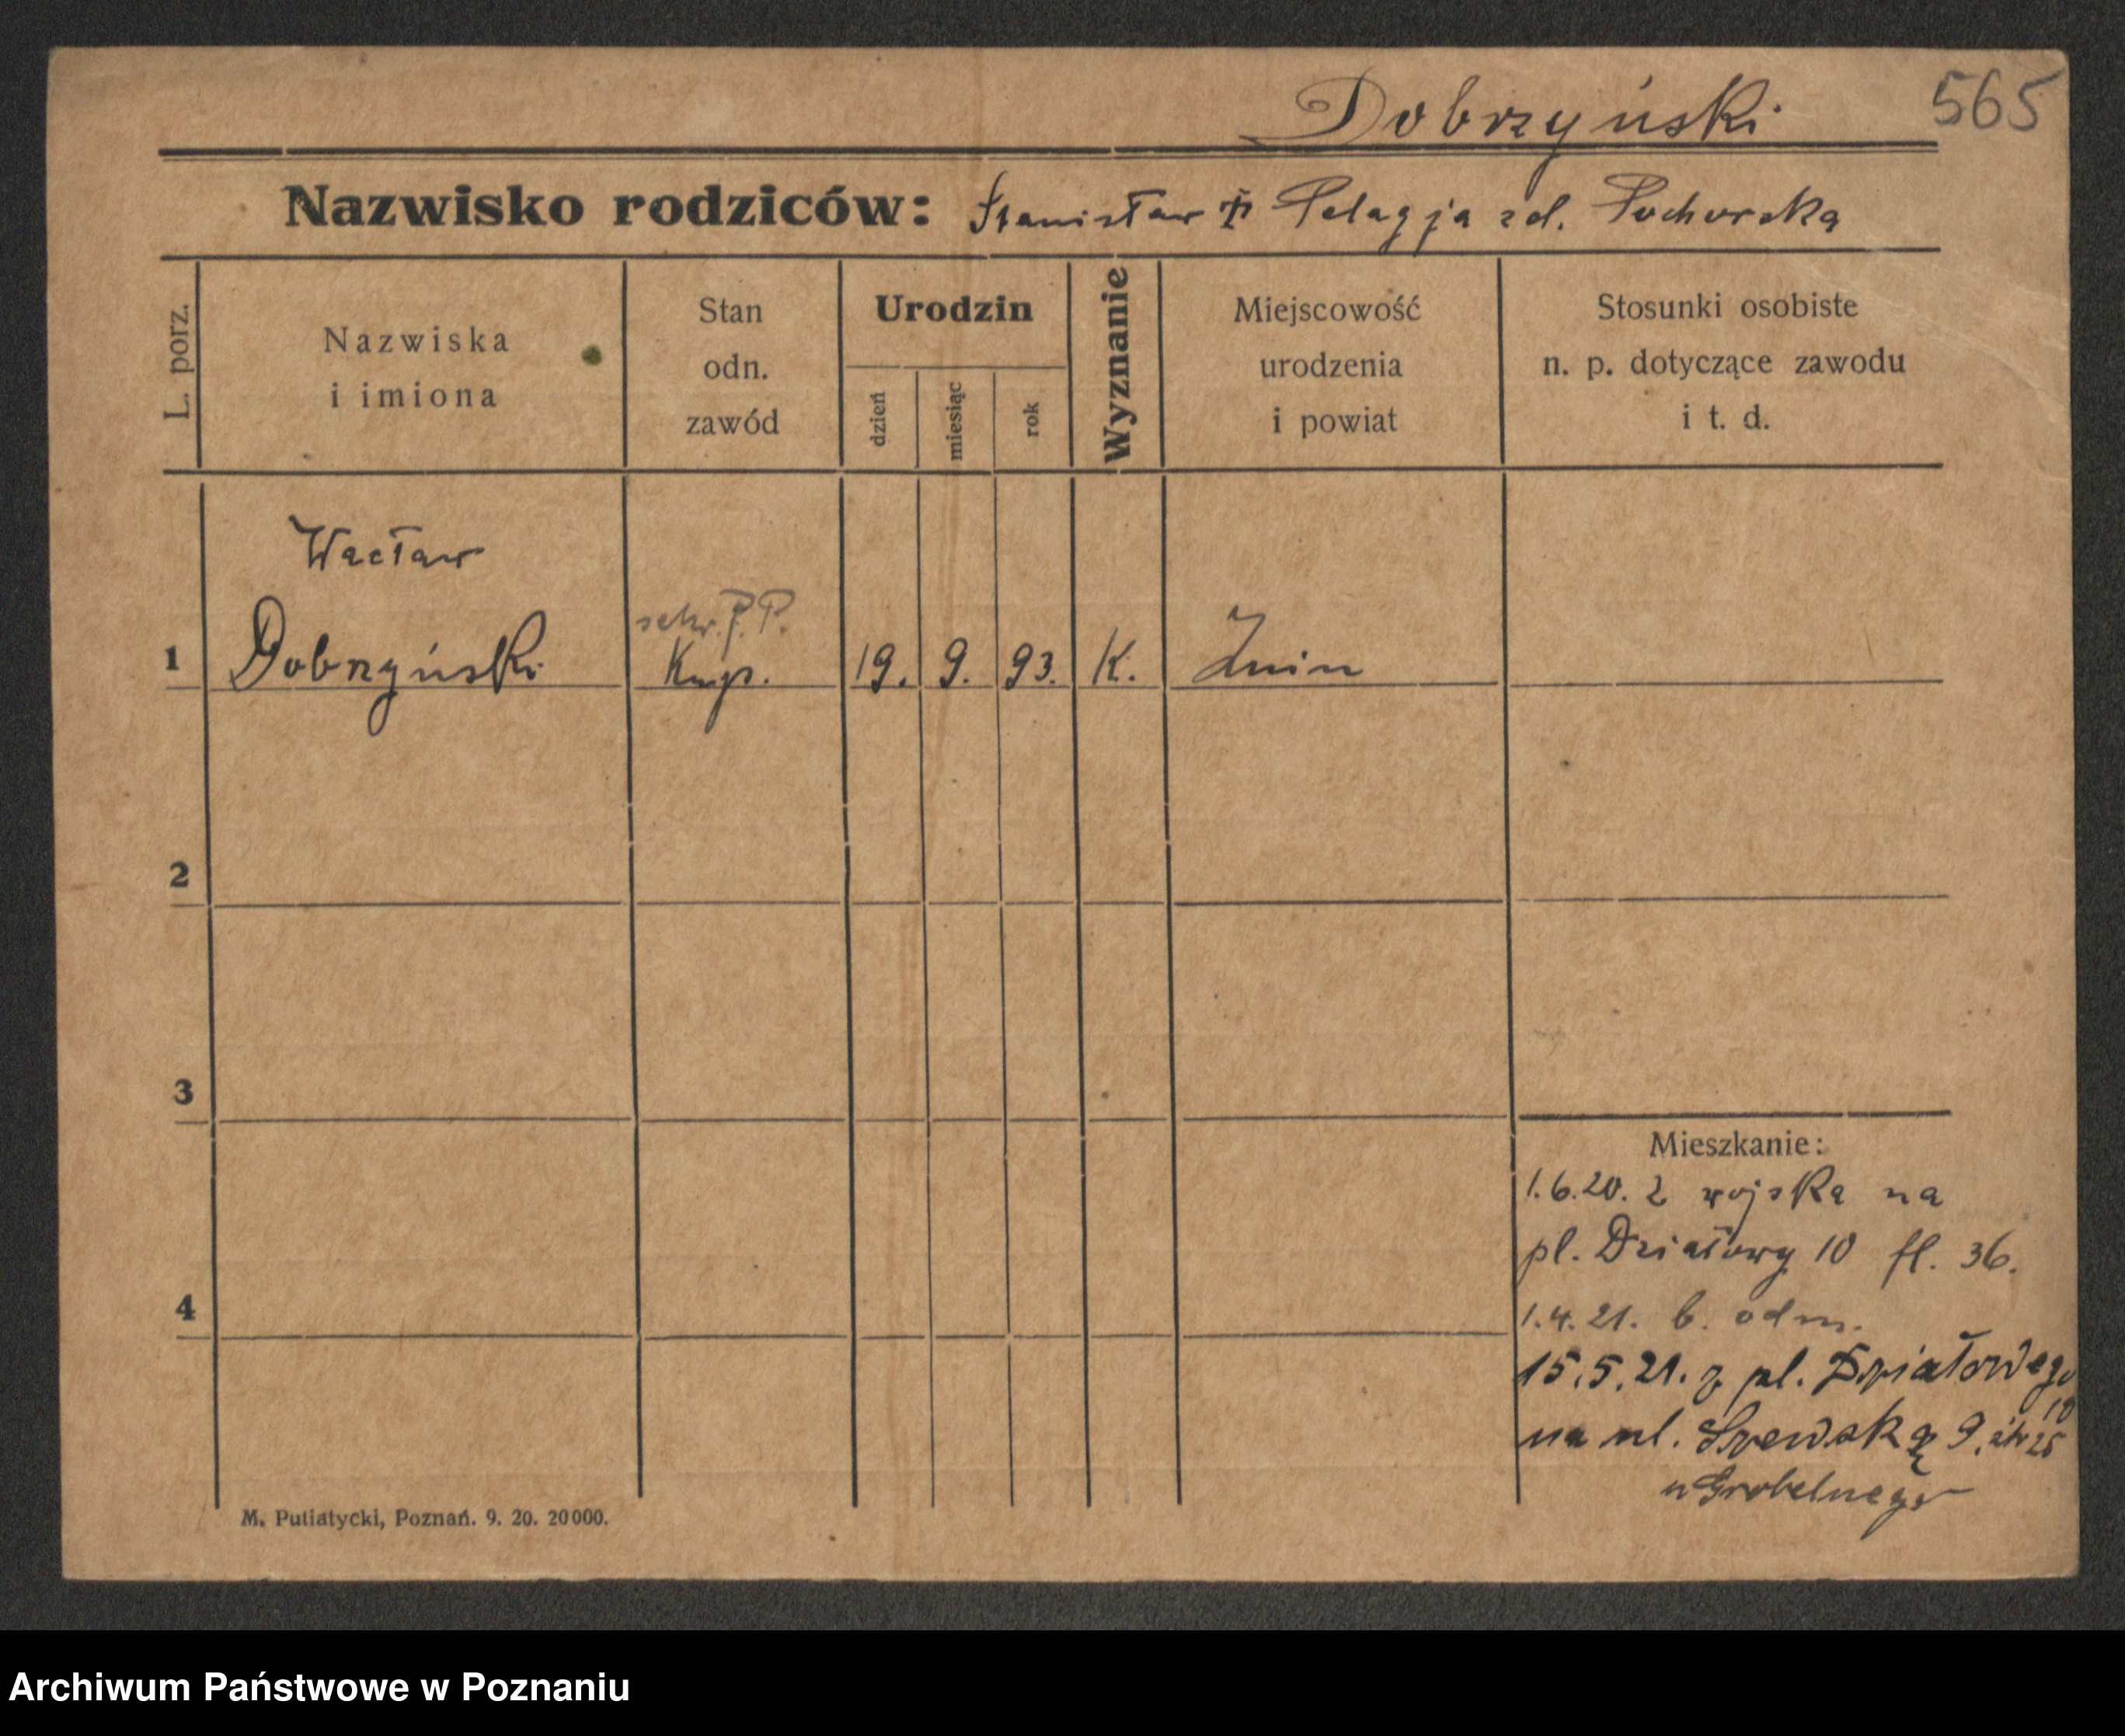 Dobrzyński 565
Nazwisko rodziców: Stanisław Pelagja zd. Pochorska
L. porz.
Nazwiska
i imiona
Stan
odn.
zawód
Urodzin
dzień
miesiąc
rok
Wyznanie
Miejscowość
urodzenia
i powiat
Stosunki osobiste
n. p. dotyczące zawodu
i t. d.
Wacław
sekr. P. P.
1 Dobrzyński Kup. 19. 9. 93. K. Żnin
2
3
4
Mieszkanie:
1.6.20. z wojska na
pl. Działowy 10 fl. 36.
1.4.21. b. odm.
15.5.21. z pl. Działowego
10
na ul. Szewską 9. 25
u Grobelnego
M. Putiatycki, Poznań. 9. 20. 20000.
Archiwum Państwowe w Poznaniu